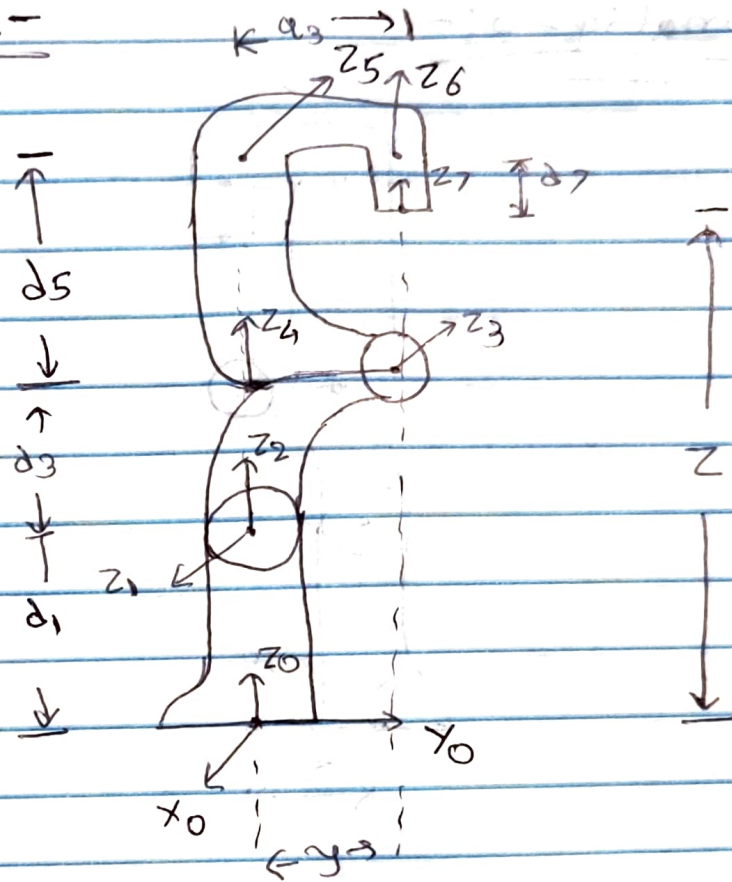 a3
Z5
Z6
Z7
d7
d5
Z4
Z3
d3
Z2
Z
Z1
d1
Z0
Y0
X0
y